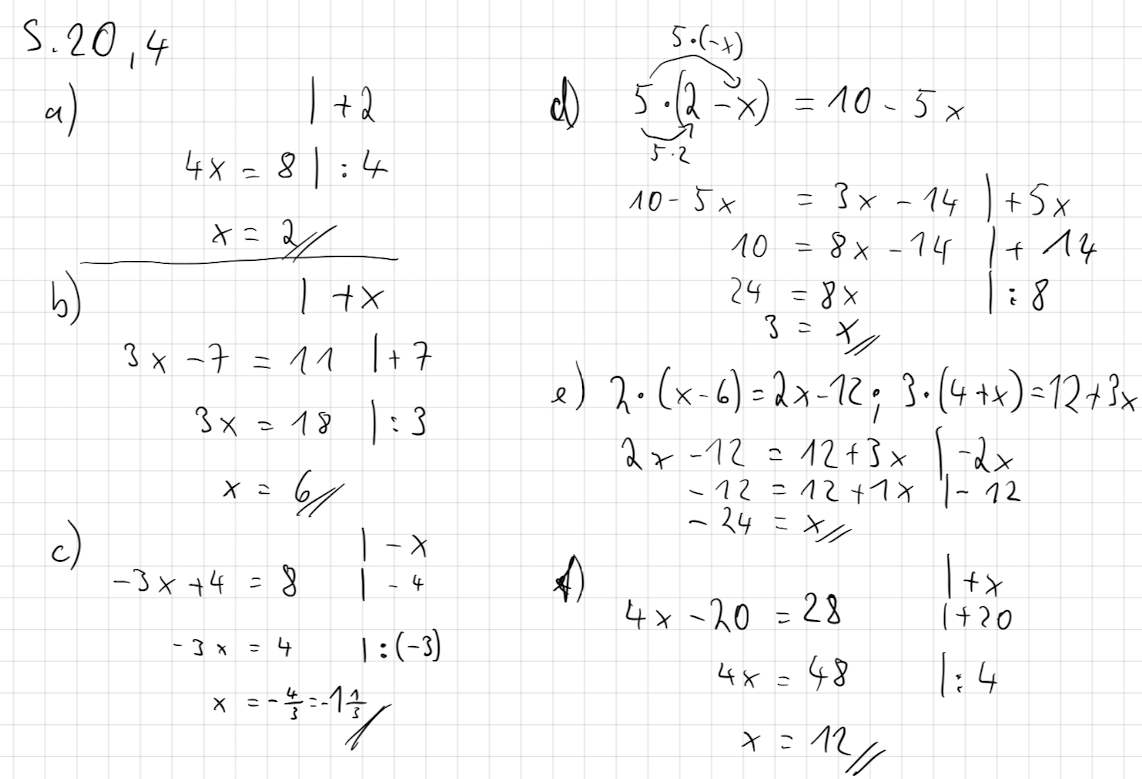 S. 20, 4
a) | +2
4x = 8 | : 4
x = 2
b) | +x
3x - 7 = 11 | +7
3x = 18 | : 3
x = 6
c) | -x
-3x + 4 = 8 | - 4
-3x = 4 | : (-3)
x = -4/3 = -1 1/3
5·(-x)
d) 5·(2 - x) = 10 - 5x
5·2
10 - 5x = 3x - 14 | +5x
10 = 8x - 14 | + 14
24 = 8x | : 8
3 = x
e) 2·(x-6) = 2x-12; 3·(4+x) = 12+3x
2x - 12 = 12 + 3x | -2x
-12 = 12 + 1x | - 12
-24 = x
f) | +x
4x - 20 = 28 | +20
4x = 48 | : 4
x = 12